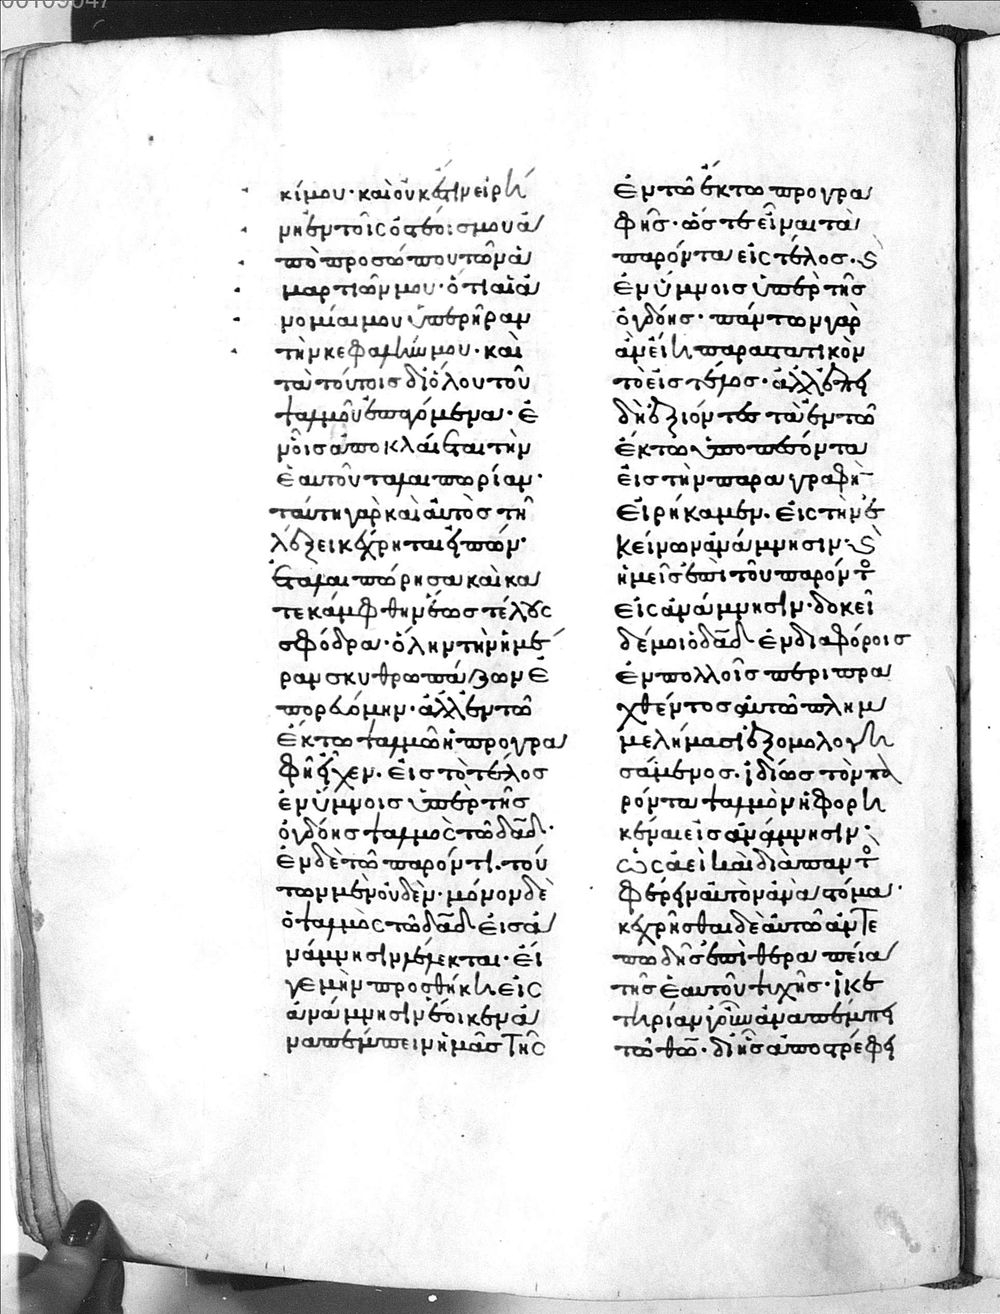 κίμου· καὶ οὐκ ἔστιν εἰρή
νη ἐν τοῖς ὀστέοις μου ἀ
πὸ προσώπου τῶν ἁ
μαρτιῶν μου· ὅτι αἱ ἀ
νομίαι μου ὑπερῆραν
τὴν κεφαλήν μου· καὶ
τὰ τούτοις δι' ὅλου τοῦ
ψαλμοῦ ἐπαγόμενα· ἐ
ν οἷς ἀποκλαίεται τὴν
ἑαυτοῦ ταλαιπωρίαν·
ταύτῃ γὰρ καὶ αὐτὸς τῇ
λέξει κέχρηται εἰπών·
ἐταλαιπώρησα καὶ κα
τεκάμφθην ἕως τέλους
σφόδρα· ὅλην τὴν ἡμέ
ραν σκυθρωπάζων ἐ
πορευόμην· ἀλλ' ἐν τῶ
ἕκτω ψαλμῶ ἡ προγρα
φὴ εἶχεν· εἰς τὸ τέλος
ἐν ὕμνοις ὑπὲρ τῆς
ὀγδόης ψαλμὸς τῶ δαδ·
ἐν δὲ τῶ παρόντι, τού
των μὲν οὐδέν· μόνον δὲ
ὁ ψαλμὸς τῶ δαδ εἰς ἀ
νάμνησιν λέλεκται· εἴ
γε μὴν προσθήκη εἰς
ἀνάμνησιν ἔοικεν ἀ
ναπέμπειν ἡμᾶς τῆς
ἐν τῶ ἕκτω προγρα
φῆς· ὥστε εἶναι τὰ
παρόντα εἰς τέλος· ϛ
ἐν ὕμνοις ὑπὲρ τῆς
ὀγδόης· πάντων γὰρ
ἂν εἴη παραστατικὸν
τὸ εἰς τέλος· ἀλλ' ἐπει
δὴ ἐξιόντες τὰ ἐν τῶ
ἕκτω ὑποπεσόντα
εἰς τὴν παραγραφὴν
εἰρήκαμεν. εἰς τὴν ἐ
κείνων ἀνάμνησιν· ϛ
ἡμεῖς ἐπὶ τοῦ παρόντος
εἰς ἀνάμνησιν· δοκεῖ
δέ μοι ὁ δαδ ἐν διαφόροις
ἐν πολλοῖς περιπρα
χθέντος αὐτῶ πλημ
μελήμασι ἐξομολογη
σάμενος· ἰδίως τὸν πα
ρόντα ψαλμὸν ἡφορη
κέναι εἰς ἀνάμνησιν·
ὡς ἀεὶ καὶ διὰ παντὸς
φέρειν αὐτὸν ἀνὰ στόμα·
κεχρῆσθαι δὲ αὐτῶ ἀντὲ
πωδῆς ἐπὶ θεραπεία
τῆς ἑαυτοῦ ψυχῆς· ἱκε
τηρίαν γοῦν ἀναπέμπει
τῶ θω· δι' ἧς ἀποτρέφει